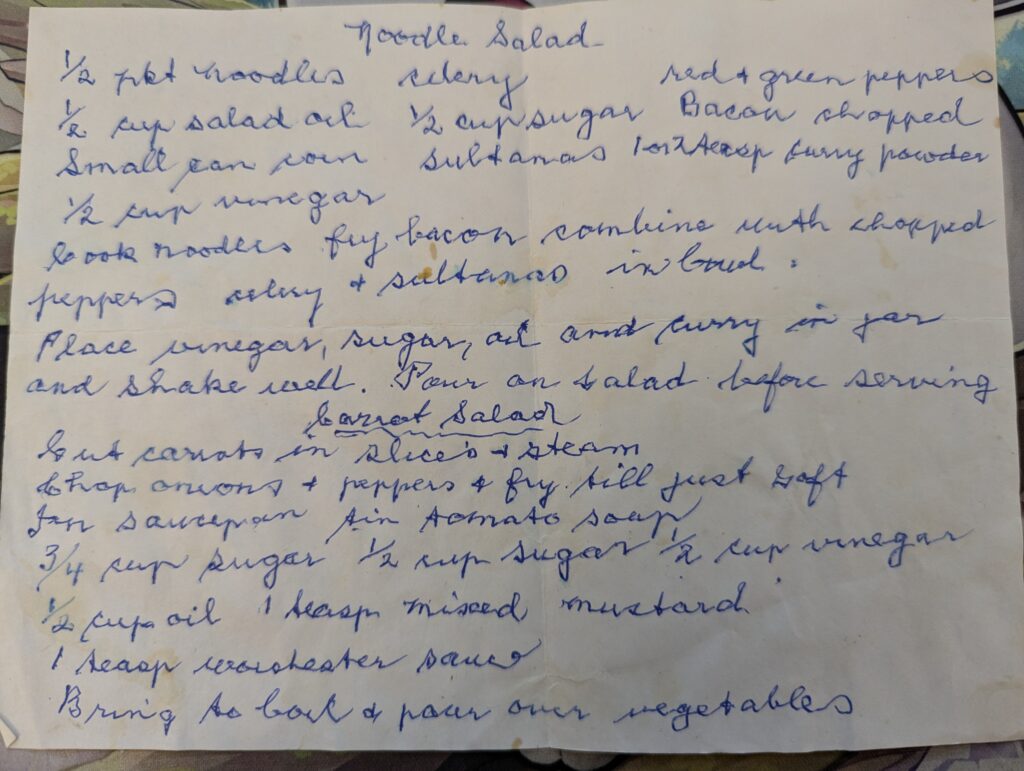 Noodle Salad
1/2 pkt noodles celery red + green peppers
1/2 cup salad oil 1/2 cup sugar Bacon chopped
Small can corn sultanas 1 or 2 teasp curry powder
1/2 cup vinegar
Cook noodles fry bacon combine with chopped
peppers celery + sultanas in bowl.
Place vinegar, sugar, oil and curry in jar
and shake well. Pour on salad before serving
Carrot Salad
Cut carrots in slices + steam
Chop onions + peppers + fry till just soft
In saucepan tin tomato soup
3/4 cup sugar 1/2 cup sugar 1/2 cup vinegar
1/2 cup oil 1 teasp mixed mustard
1 teasp worchester sauce
Bring to boil + pour over vegetables